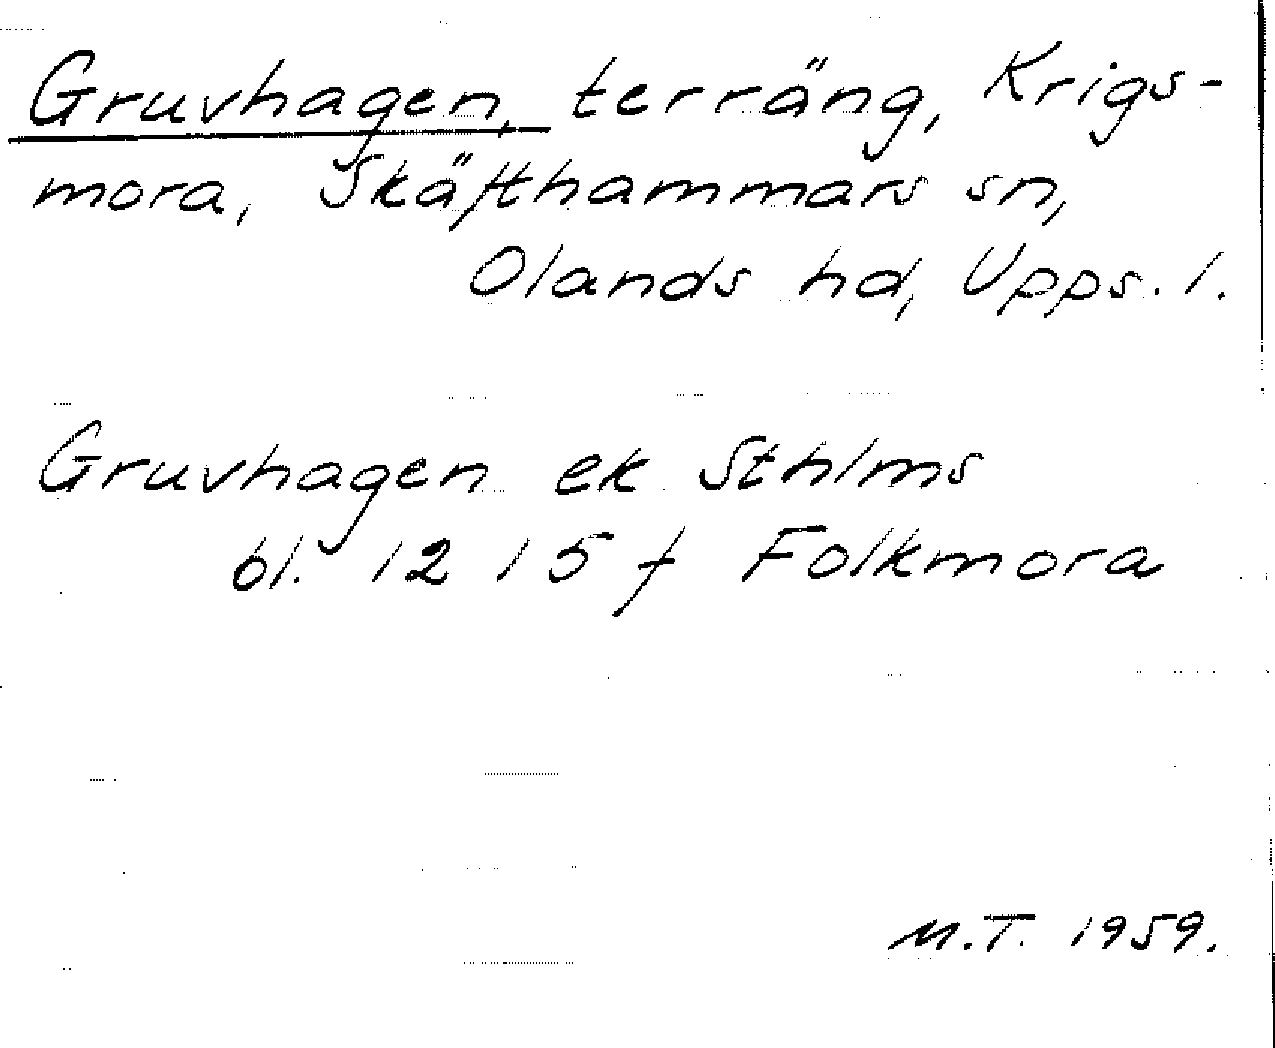 Gruvhagen, terräng, Krigs-
mora, Skäfthammars sn,
Olands hd, Upps. l.
Gruvhagen ek Sthlms
bl. 12 15 f Folkmora
M.T. 1959.